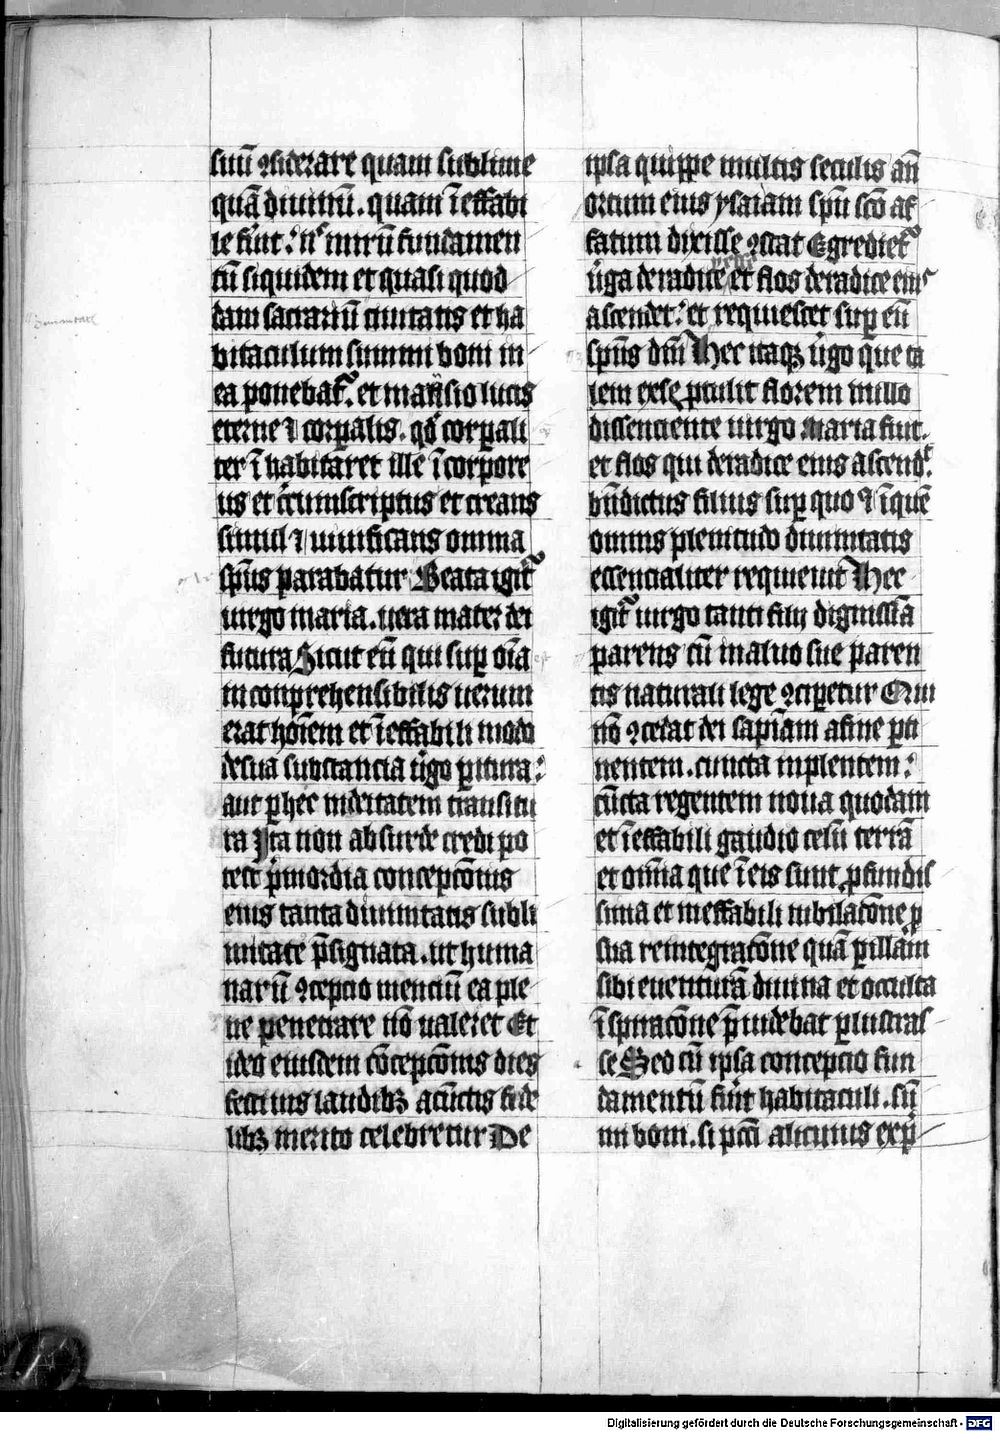 suū ꝯsiderare quam sublime
quā diuinū. quam īeffabi
le fuit. nimirū fundamen
tū siquidem et quasi quod
dam sacrariū ciuitatis et ha
bitaculum summi boni in
ea ponebat᷑. et mansio lucis
eterne ⁊ corꝑalis. corꝑali
ter īhabitaret ille īcorpore
us et circumscriptus et creans
simul ⁊ uiuificans omnia
sp̄us parabatur Beata igit᷑
uirgo maria. uera mater dei
futura Sicut eū qui suꝑ oīa
inconprehensibilis uerum
erat hoīem et īeffabili modo
de sua substancia ꝑitura:
aut ꝑ hec in deitatem transitu
ra Ita non absurde credi po
test primordia concepcōnis
eius tanta diuinitatis subli
mitate p̄signata. ut huma
narū ꝯcepcio mencium ea ple
ne penetrare nō ualeret Et
ideo eiusdem cōcepcōnis dies
festiuis laudibꝫ a cūctis fide
libꝫ merito celebretur De
ipsa quippe multis seculis an̄
ortum eius ysaiam sp̄u sc̄o af
fatum dixisse ꝯstat Egrediet᷑
uirga de radice yesse et flos de radice eius
ascendet: et requiescet suꝑ eū
sp̄us dn̄i Hec itaqꝫ uirgo que ta
lem ex se ꝓtulit florem in illo
dissenciente uirgo Maria fuit.
et flos qui de radice eius ascend᷑.
bn̄dictus filius suꝑ quo ⁊ ī quē
omnis plenitudo diuinitatis
essencialiter requieuit Hec
igit᷑ uirgo tanti filij dignissīa
parens cū in aluo sue paren
tis naturali lege ꝯciperetur Quis
nō ꝯcedat dei sapīam a fine
nentem. cuncta inplentem:
cūcta regentem noua quodam
et īeffabili gaudio celū terrā
et omnia que ī eis sunt ꝓfundis
sima et ineffabili iubilacōne ꝓ
sua reintegracōne quā ꝑ illam
sibi euenturā diuina et occulta
īspiracōne p̄uidebat ꝑlustras
se Sed cū ipsa concepcio fun
damentū fuit habitaculi. sū
mi boni. si pccī alicuius exp̄
Digitalisierung gefördert durch die Deutsche Forschungsgemeinschaft - DFG